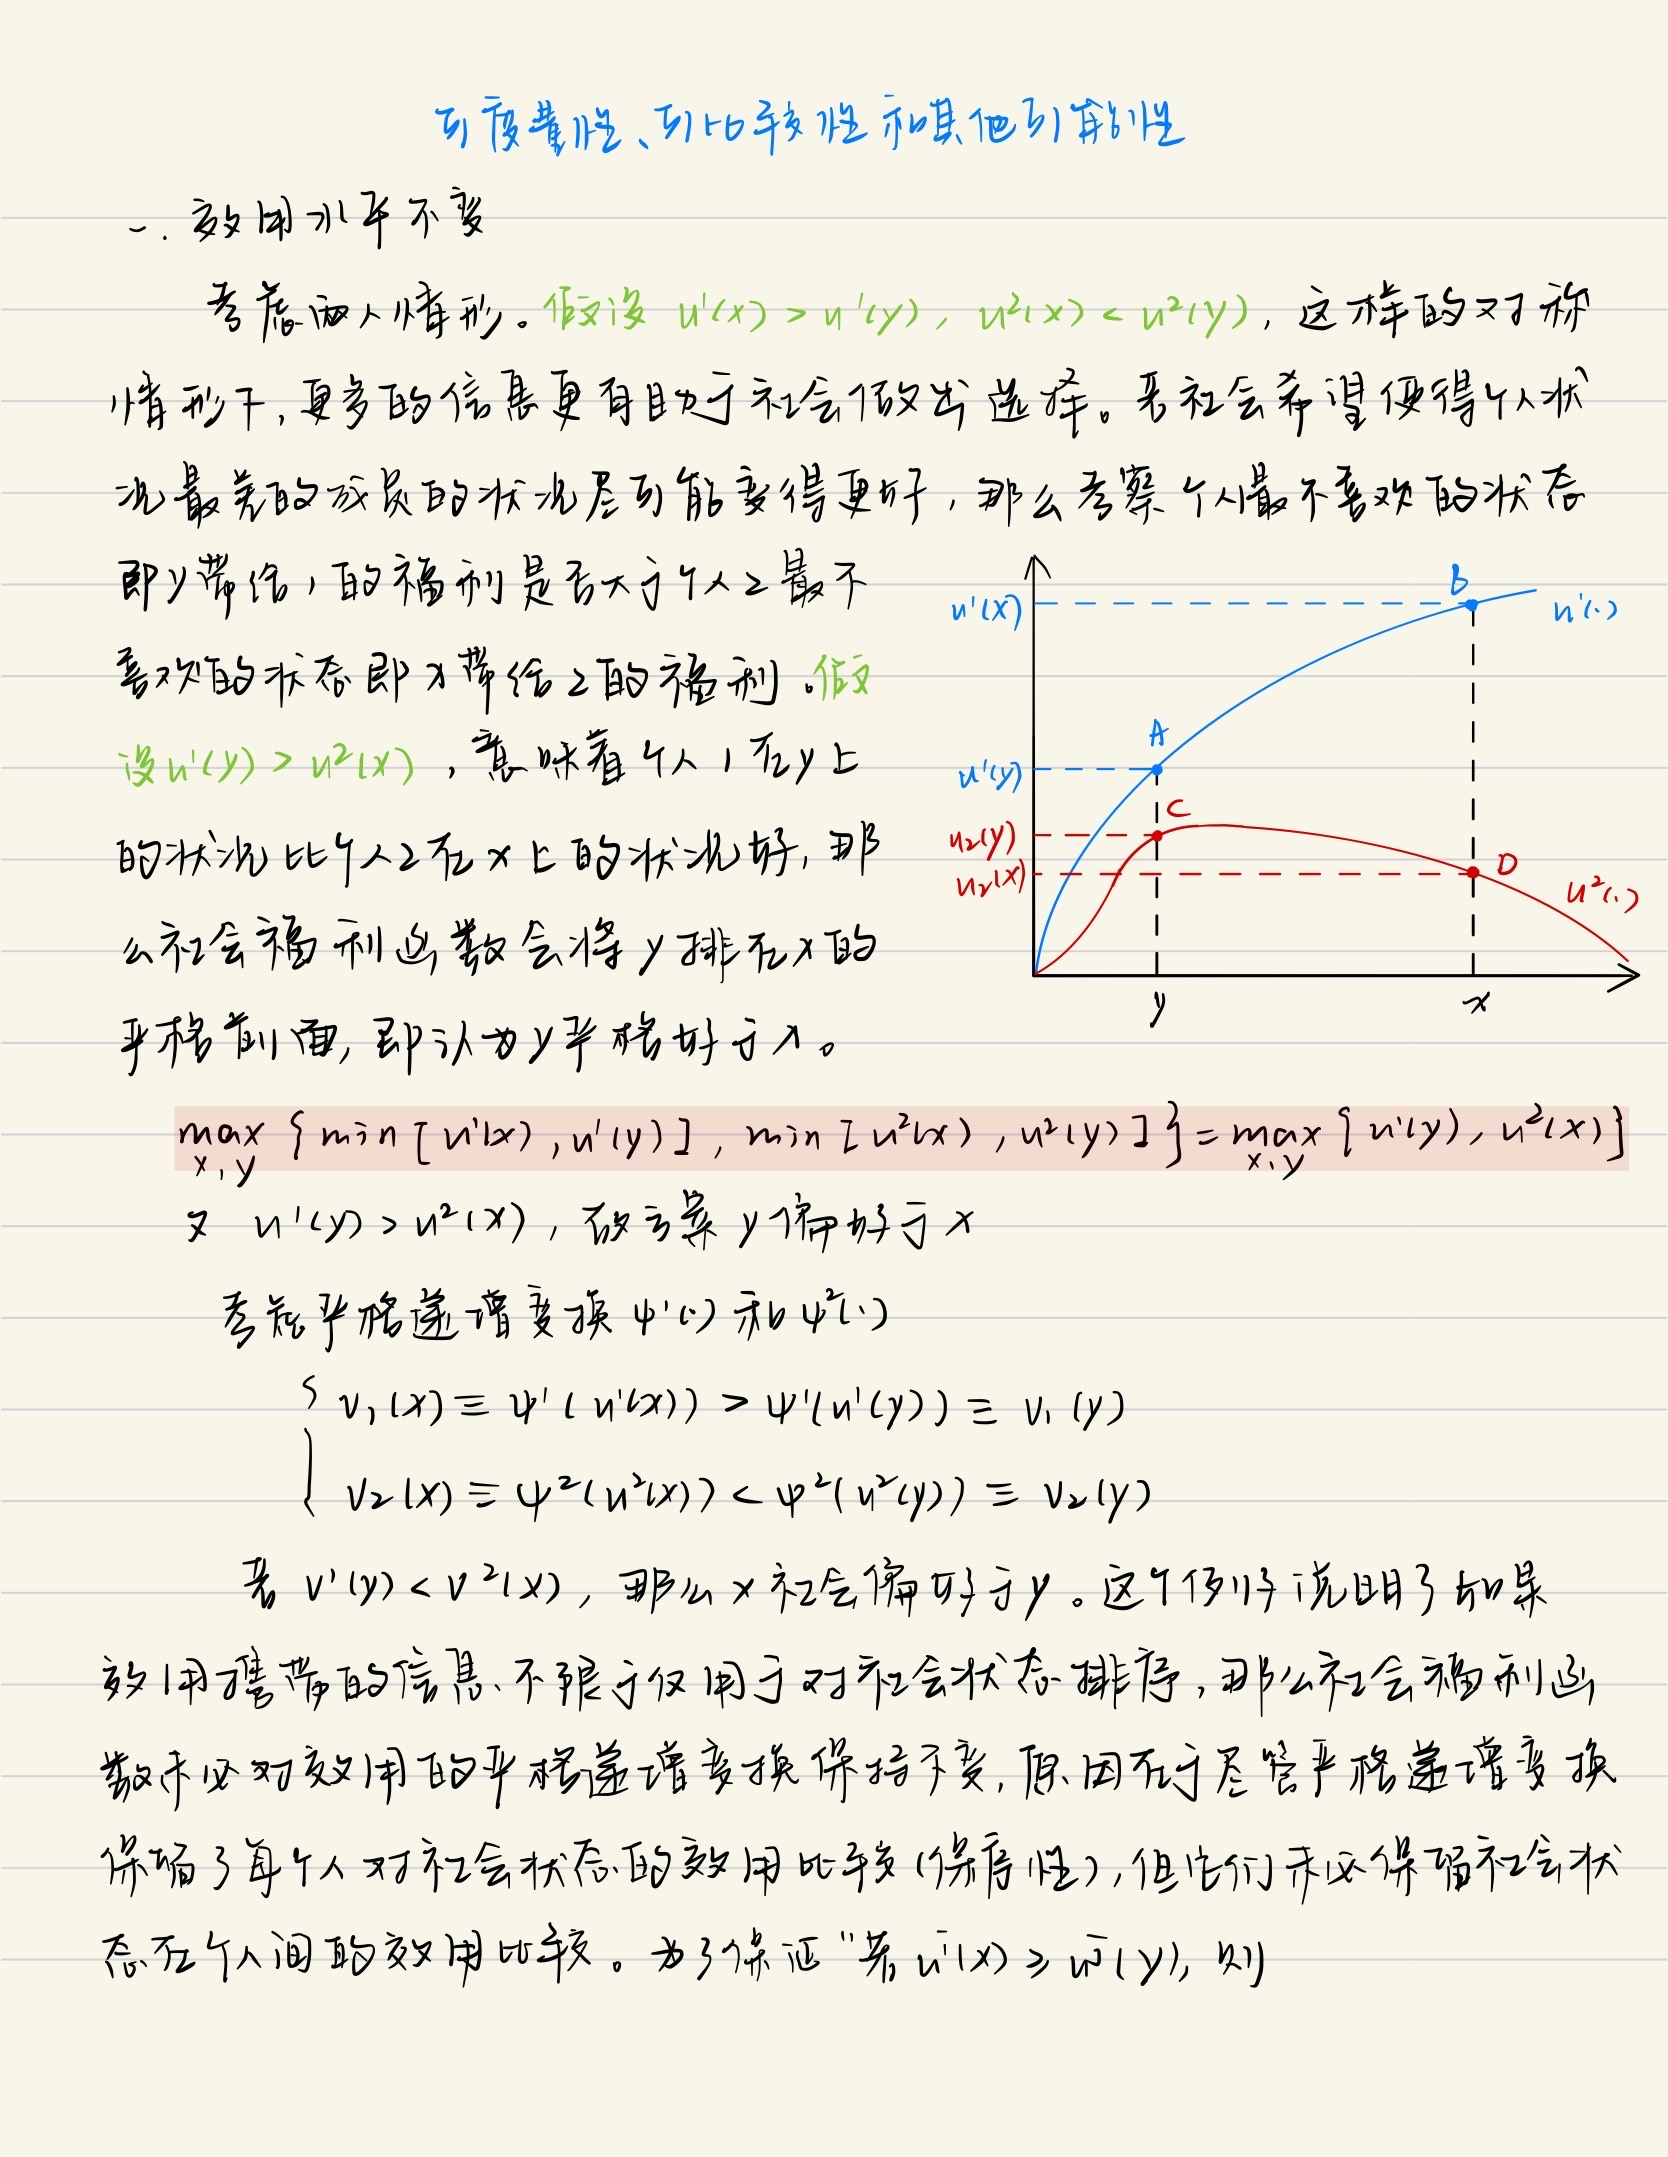 可度量性、可比较性和其他可能性
一. 效用水平不变
考虑两人情形。假设 u¹(x) > u¹(y), u²(x) < u²(y), 这样的对称
情形下, 更多的信息更有助于社会做出选择。若社会希望使得个人状
况最差的成员的状况尽可能变得更好, 那么考察个人1最不喜欢的状态
即y带给1的福利是否大于个人2最不
喜欢的状态即x带给2的福利。假
设u¹(y) > u²(x), 意味着个人1在y上
的状况比个人2在x上的状况好, 那
么社会福利函数会将y排在x的
严格前面, 即认为y严格好于x。
u¹(x)
B
u¹(·)
A
u¹(y)
C
u₂(y)
D
u₂(x)
u²(·)
y
x
max {min[u¹(x), u¹(y)], min[u²(x), u²(y)]} = max {u¹(y), u²(x)}
x, y
x, y
又 u¹(y) > u²(x), 故方案y偏好于x
考虑严格递增变换 ψ¹(·) 和 ψ²(·)
{ v₁(x) ≡ ψ¹(u¹(x)) > ψ¹(u¹(y)) ≡ v₁(y)
v₂(x) ≡ ψ²(u²(x)) < ψ²(u²(y)) ≡ v₂(y)
若 v¹(y) < v²(x), 那么x社会偏好于y。这个例子说明了如果
效用携带的信息不限于仅用于对社会状态排序, 那么社会福利函
数未必对效用的严格递增变换保持不变, 原因在于尽管严格递增变换
保留了每个人对社会状态的效用比较(保序性), 但它们未必保留社会状
态在个人间的效用比较。为了保证“若 uⁱ(x) ≥ uʲ(y), 则